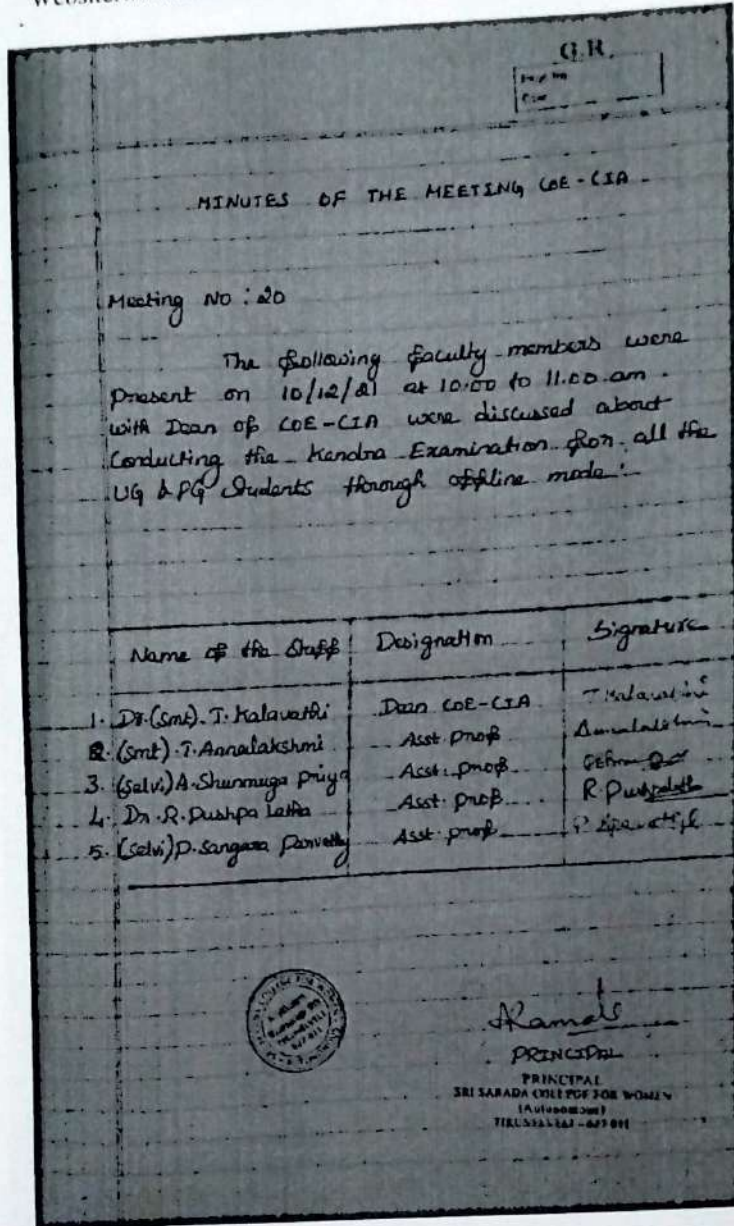 G.R.
MINUTES OF THE MEETING COE-CIA
Meeting No : 20
The following faculty members were
present on 10/12/21 at 10.00 to 11.00 am.
with Dean of COE-CIA were discussed about
Conducting the Kendra Examination for all the
UG & PG Students through offline mode.
Name of the Staff Designation Signature
1. Dr.(Smt). T. Kalavathi Dean COE-CIA T Kalavathi
2. (Smt). T. Annalakshmi Asst. Prof Annalakshmi
3. (Selvi) A. Shunmuga Priya Asst. Prof
4. Dr. R. Pushpa Latha Asst. Prof R. Pushpalatha
5. (Selvi) P. Sangara Parvathy Asst. prof
PRINCIPAL
PRINCIPAL
SRI SARADA COLLEGE FOR WOMEN
(Autonomous)
TIRUNELVELI - 627 011